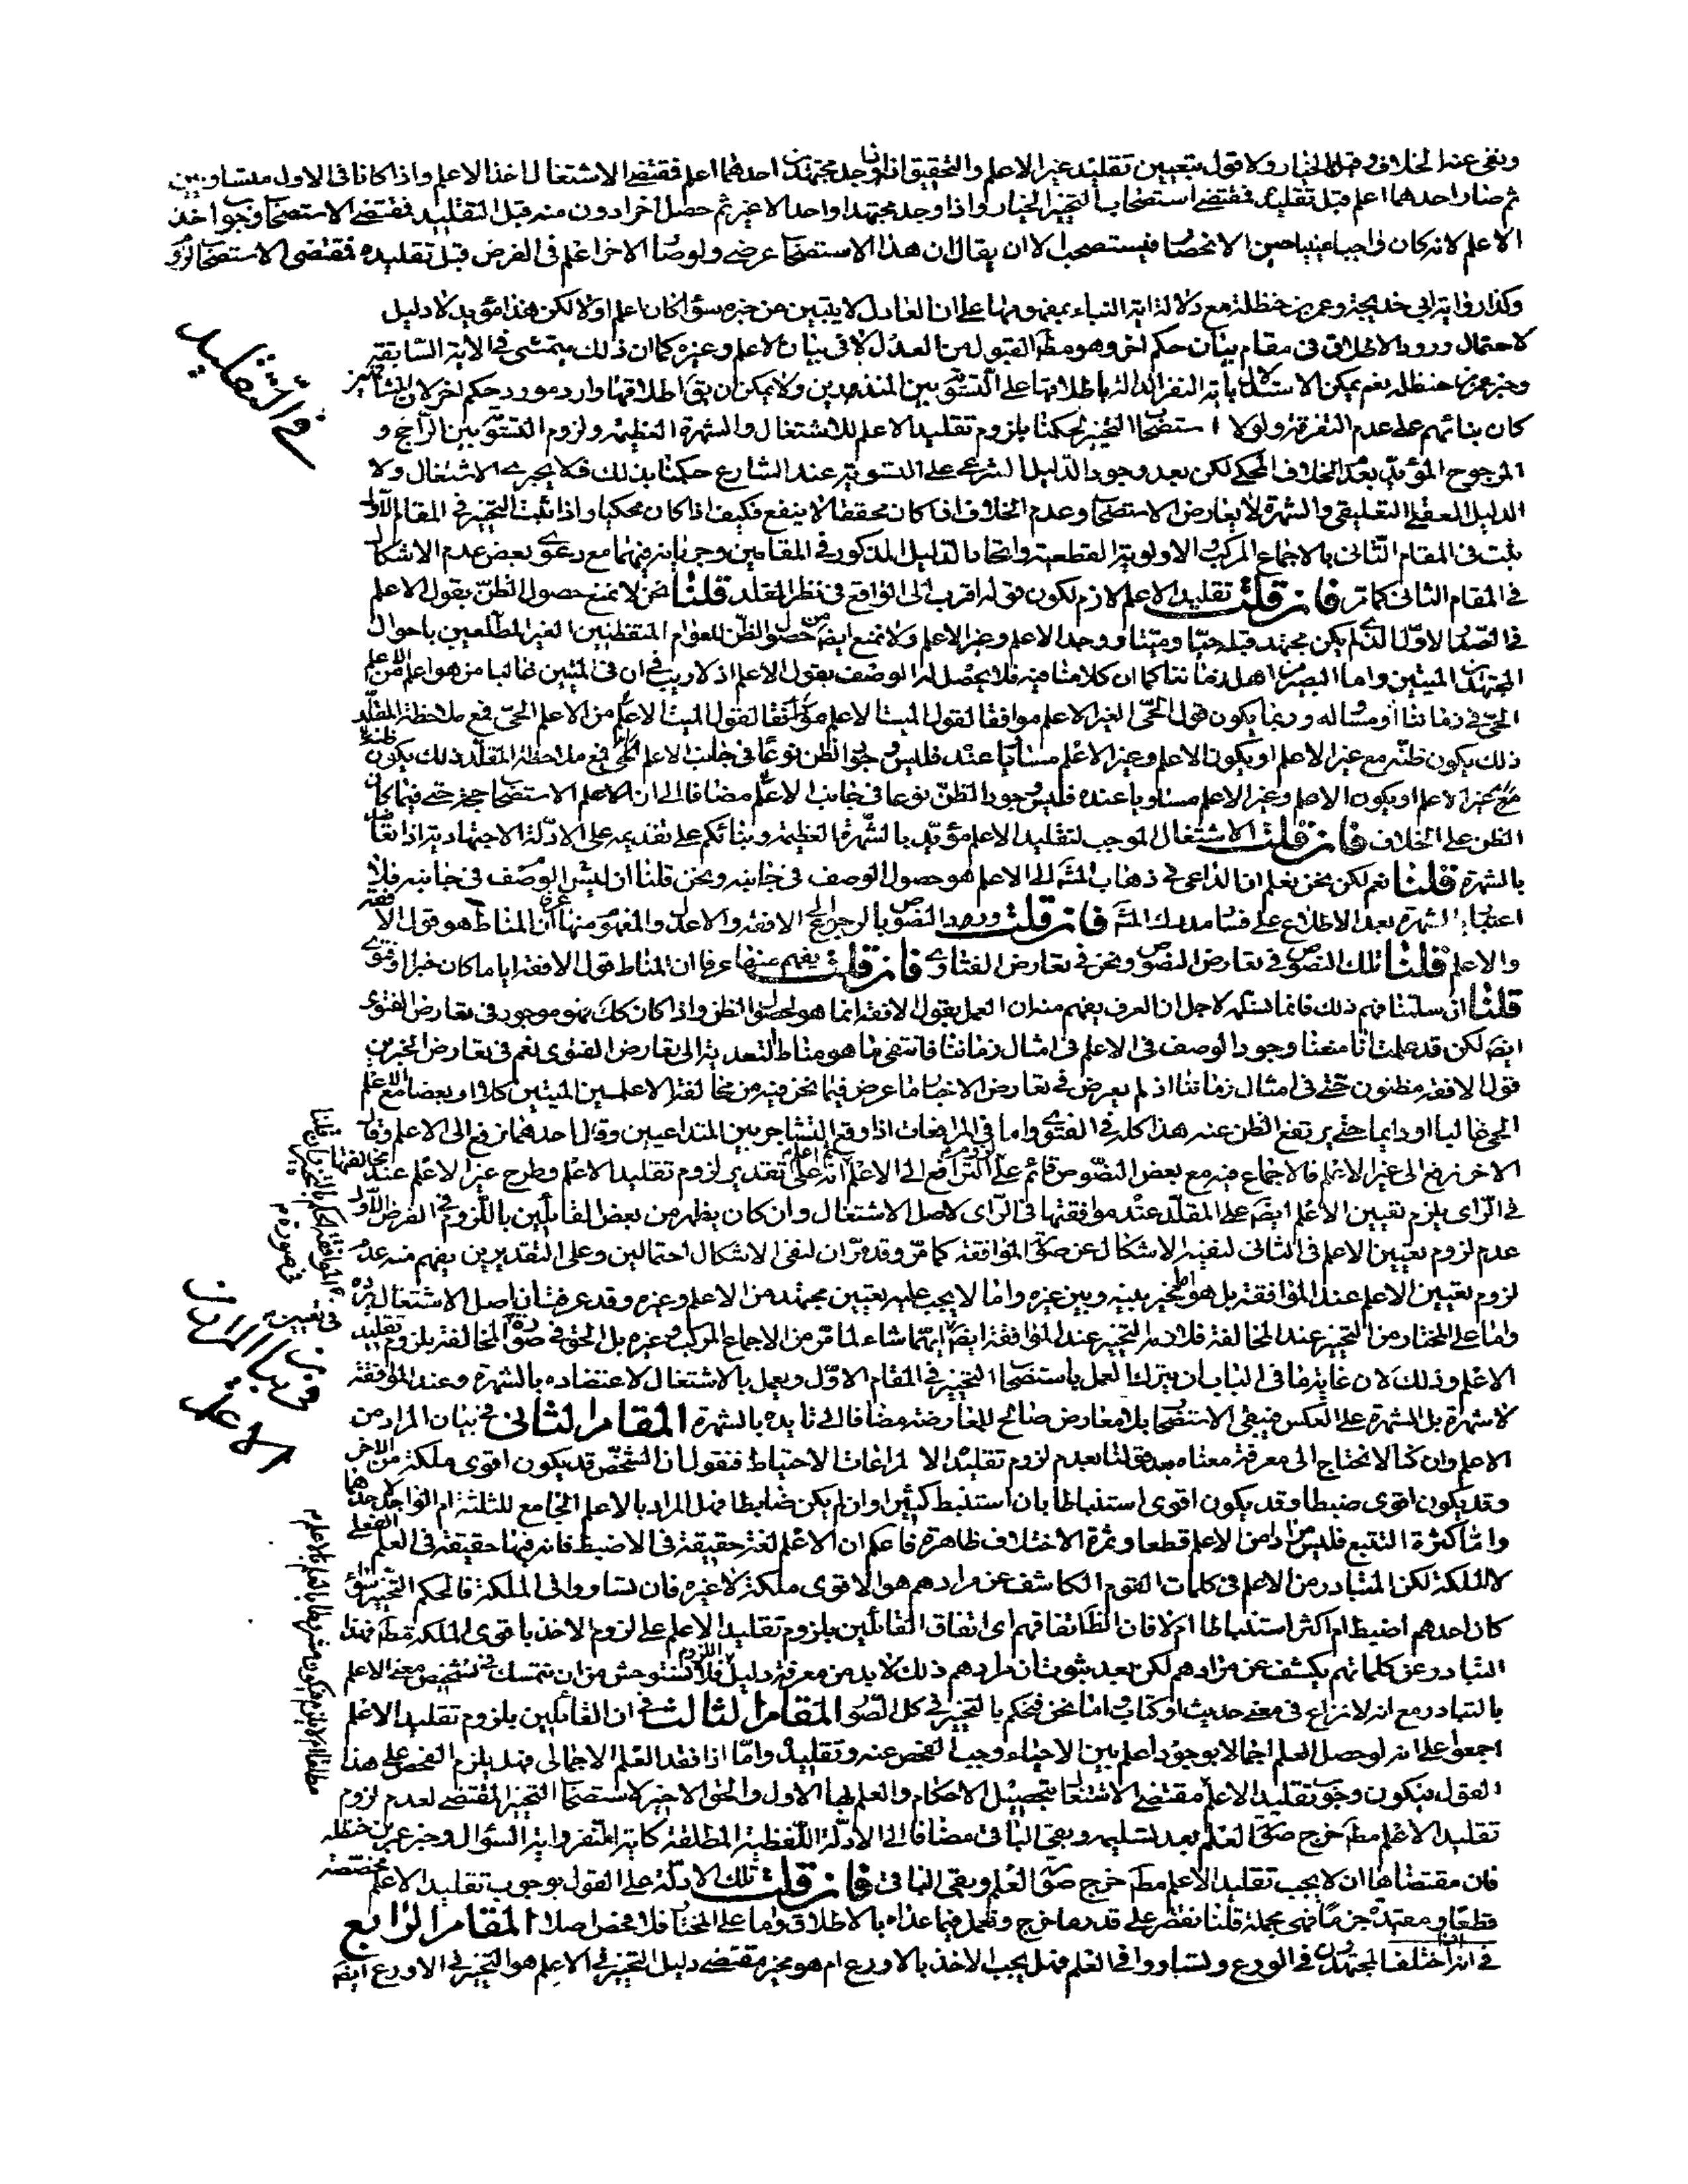 ونفى عنه الخلاف وقيل بالخيار ولا قول بتعيين تقليد غير الاعلم والتحقيق انه ان وجد مجتهدان احدهما اعلم فمقتضى الاشتغال الاخذ الاعلم واذا كانا فى الاول متساويين
ثم صار احدهما اعلم قبل تقليده فمقتضى استصحاب التخيير الخيار واذا وجد مجتهدا واحدا لا غير ثم حصل اخر ادون منه قبل التقليد فمقتضى الاستصحاب وجوب اخذ
الاعلم لانه كان واجبا عينيا حين الانحصار فيستصحب الا ان يقال ان هذا الاستصحاب عرضى ولو صار الاخر اعلم فى الفرض قبل تقليده فمقتضى الاستصحاب
وكذا رواية ابى خديجة وعمر بن حنظلة مع دلالة اية النباء بمفهومها على ان العادل لا يتبين من خبره سواء كان اعلم او لا لكن هذا مؤيد لا دليل
لاحتمال ورود الاطلاق فى مقام بيان حكم اخر وهو مط القبول من العدل لا فى بيان الاعلم وغيره كما ان ذلك يتمشى فى الاية السابقة
وخبر عمر بن حنظلة نعم يمكن الاستدلال باية النفر الدالة باطلاقها على التسوية بين المنذرين ولا يمكن ان يق اطلاقها وارد مورد حكم اخر لان
كان بنائهم على عدم التفرقة ولولا استصحاب التخيير لحكمنا بلزوم تقليد الاعلم للاشتغال والشهرة العظيمة ولزوم التسوية بين الراجح و
المرجوح المؤيد بعدم الخلاف المحكى لكن بعد وجود الدليل الشرعى على التسوية عند الشارع حكمنا بذلك فلا يجرى الاشتغال ولا
الدليل العقلى التعليقى والشهرة لا يعارض الاستصحاب وعدم الخلاف اذا كان محققا لا ينفع فكيف اذا كان محكيا واذا ثبت التخيير فى المقام الاول
يثبت فى المقام الثانى بالاجماع المركب والاولوية القطعية واتحاد الدليل المذكور فى المقامين وجريانه فيهما مع دعوى بعض عدم الاشكال
فى المقام الثانى كما مر فان قلت تقليد الاعلم لازم لكون قوله اقرب الى الواقع فى نظر المقلد قلنا نحن لا نمنع حصول الظن بقول الاعلم
فى الصدر الاول الذى لم يكن مجتهد قبله حيا وميتا ووجد الاعلم وغير الاعلم ولا نمنع ايض من حصول الظن للعوام المتفطنين الغير المطلعين باحوال
المجتهدين الميتين واما البصير من اهل زماننا كما ان كلامنا فيه فلا يحصل له الوصف بقول الاعلم اذ لا ريب فى ان فى الميتين غالبا من هو اعلم من الاعلم
الحى فى زماننا او مساو له وربما يكون قول الحى الغير الاعلم موافقا لقول الميت الاعلم من الاعلم الحى فمع ملاحظة المقلد
ذلك يكون ظنه مع غير الاعلم او يكون الاعلم وغير الاعلم مساويا عنده فليس وجود الظن نوعا فى جانب الاعلم الحى فمع ملاحظة المقلد ذلك يكون ظنه
مع غير الاعلم او يكون الاعلم وغير الاعلم مساويا عنده فليس وجود الظن نوعا فى جانب الاعلم مضافا الى ان الاستصحاب حجة حتى فيما كان
الظن على الخلاف فان قلت الاشتغال الموجب لتقليد الاعلم مؤيد بالشهرة العظيمة وبنائكم على تقديمه على الادلة الاجتهادية اذا تعاضد
بالشهرة قلنا نعم لكن نحن نعلم ان الداعى فى ذهاب المش الى الاعلم هو حصول الوصف فى جانبه ونحن قلنا ان ليس الوصف فى جانبه فلا
اعتبار بالشهرة بعد الاطلاع على فساد مدرك المش فان قلت ورود النصوص بالرجوع الى الافقه والاعدل والمفهوم منها عرفا ان المناط هو قول الافقه
والاعلم قلنا تلك النصوص فى تعارض النصوص ونحن فى تعارض الفتاوى فان قلت يفهم منها عرفا ان المناط قول الافقه ايا ما كان خبرا او فتوى
قلنا ان سلمنا فهم ذلك فانما نسلمه لاجل ان العرف يفهم منه ان العمل بقول الافقه انما هو لحصول الظن واذا كان كك فهو موجود فى تعارض الفتوى
ايض لكن قد علمت انا منعنا وجود الوصف فى الاعلم فى امثال زماننا فانتفى ما هو مناط التعدية الى تعارض الفتوى نعم فى تعارض الخبرين
قول الافقه مظنون حتى فى امثال زماننا اذ لم يعرض فى تعارض الاخبار ما عرض فيما نحن فيه من مخالفة الاعلمين الميتين كلا او بعضا مع الاعلم
الحى غالبا او دايما حتى يرتفع الظن عنه هذا كله فى الفتوى واما فى المرافعات اذا وقع التشاجر بين المتداعيين وقال احدهما نرفع الى الاعلم وقال
الاخر نرفع الى غير الاعلم فالاجماع فيه مع بعض النصوص قائم على لزوم الترافع الى الاعلم ثم اعلم انه على تقدير لزوم تقليد الاعلم وطرح غير الاعلم عند مخالفتهما
فى الراى يلزم تعيين الاعلم ايض على المقلد عند موافقتهما فى الراى لاصل الاشتغال وان كان يظهر من بعض القائلين باللزوم فى الفرض الاول
عدم لزوم تعيين الاعلم فى الثانى لنفيه الاشكال عن صورة الموافقة كما مر وقد مر ان لنفى الاشكال احتمالين وعلى التقديرين يفهم منه عدم
لزوم تعيين الاعلم عند الموافقة بل هو اما مخير بينه وبين غيره واما لا يجب عليه تعيين مجتهد من الاعلم وغيره وقد عرفت ان اصل الاشتغال يرده
واما على المختار من التخيير عند المخالفة فلازمه التخيير عند الموافقة ايض ايهما شاء لما مر من الاجماع المركب وغيره بل الحق فى صورة المخالفة يلزم تقليد
الاعلم وذلك لان غاية ما فى الباب ان يترك العمل باستصحاب التخيير فى المقام الاول ويعمل بالاشتغال لاعتضاده بالشهرة وعند الموافقة
لا شهرة بل الشهرة على العكس فيبقى الاستصحاب بلا معارض صالح للمعارضة مضافا الى تاييده بالشهرة المقام الثانى فى بيان المراد من
الاعلم وان كنا لا نحتاج الى معرفة معناه بعد قولنا بعدم لزوم تقليده الا لمراعات الاحتياط فنقول ان الشخص قد يكون اقوى ملكة من الاخر
وقد يكون اقوى ضبطا وقد يكون اقوى استنباطا بان استنبط كثيرا وان لم يكن ضابطا فهل المراد بالاعلم الجامع للثلثة ام الواجد لاحدها
واما كثرة التتبع فليس مرادا من الاعلم قطعا وثمرة الاختلاف ظاهرة فاعلم ان الاعلم لغة حقيقة فى الاضبط فانه فيها حقيقة فى العلم الفعلى
لا الملكة لكن المتبادر من الاعلم فى كلمات القوم الكاشف عن مرادهم هو الاقوى ملكة لا غيره فان تساووا فى الملكة فالحكم التخيير سواء
كان احدهم اضبط ام اكثر استنباطا ام لا فان الظ اتفاقهم اى اتفاق القائلين بلزوم تقليد الاعلم على لزوم الاخذ باقوى الملكة مط فهذا
التبادر عن كلماتهم يكشف عن مرادهم لكن بعد ثبوت ان مرادهم ذلك لا بد من معرفة دليل اللزوم فلا تستوحش من ان نتمسك فى تشخيص معنى الاعلم
بالتبادر مع انه لا نزاع فى معنى حديث او كتاب واما نحن فنحكم بالتخيير فى كل الصور المقام الثالث فى ان القائلين بلزوم تقليد الاعلم
اجمعوا على انه لو حصل العلم اجمالا بوجود اعلم بين الاحياء وجب الفحص عنه وتقليده واما اذا فقد العلم الاجمالى فهل يلزم الفحص على هذا
القول فيكون وجوب تقليد الاعلم مقتضى الاشتغال بتحصيل الاحكام والعلم بها الاول والحق الاخير لاستصحاب التخيير المقتضى لعدم لزوم
تقليد الاعلم مط خرج صورة العلم بعد تسليمه وبقى الباقى مضافا الى الادلة اللفظية المطلقة كاية النفر واية السؤال وخبر عمر بن حنظلة
فان مقتضاها ان لا يجب تقليد الاعلم مط خرج صورة العلم وبقى الباقى فان قلت تلك الادلة على القول بوجوب تقليد الاعلم مخصصة
قطعا فهى مجملة قلنا نقتصر على قدر ما خرج ونعمل فيما عداه بالاطلاق واما على المختار فلا فحص اصلا المقام الرابع
فى انه اذا اختلف المجتهدون فى الورع وتساووا فى العلم فهل يجب الاخذ بالاورع ام هو مخير مقتضى دليل التخيير فى الاعلم هو التخيير فى الاورع ايض
فى التقليد
فى بيان المراد من
الاعلم